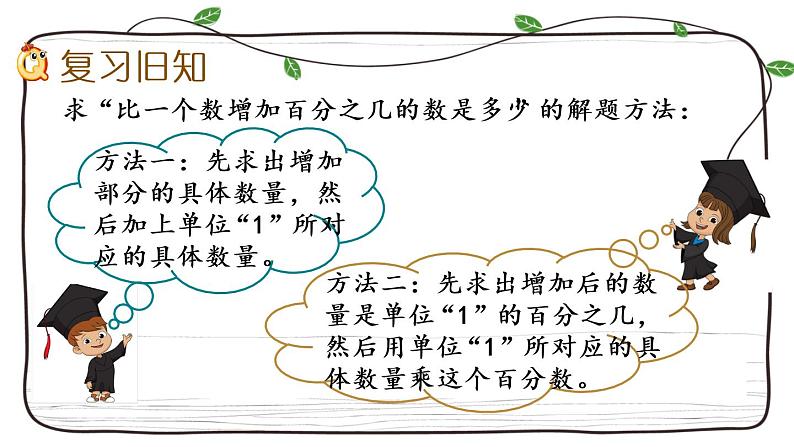 复习旧知
求“比一个数增加百分之几的数是多少”的解题方法：
方法一：先求出增加
部分的具体数量，然
后加上单位“1”所对
应的具体数量。
方法二：先求出增加后的数
量是单位“1”的百分之几，
然后用单位“1”所对应的具
体数量乘这个百分数。